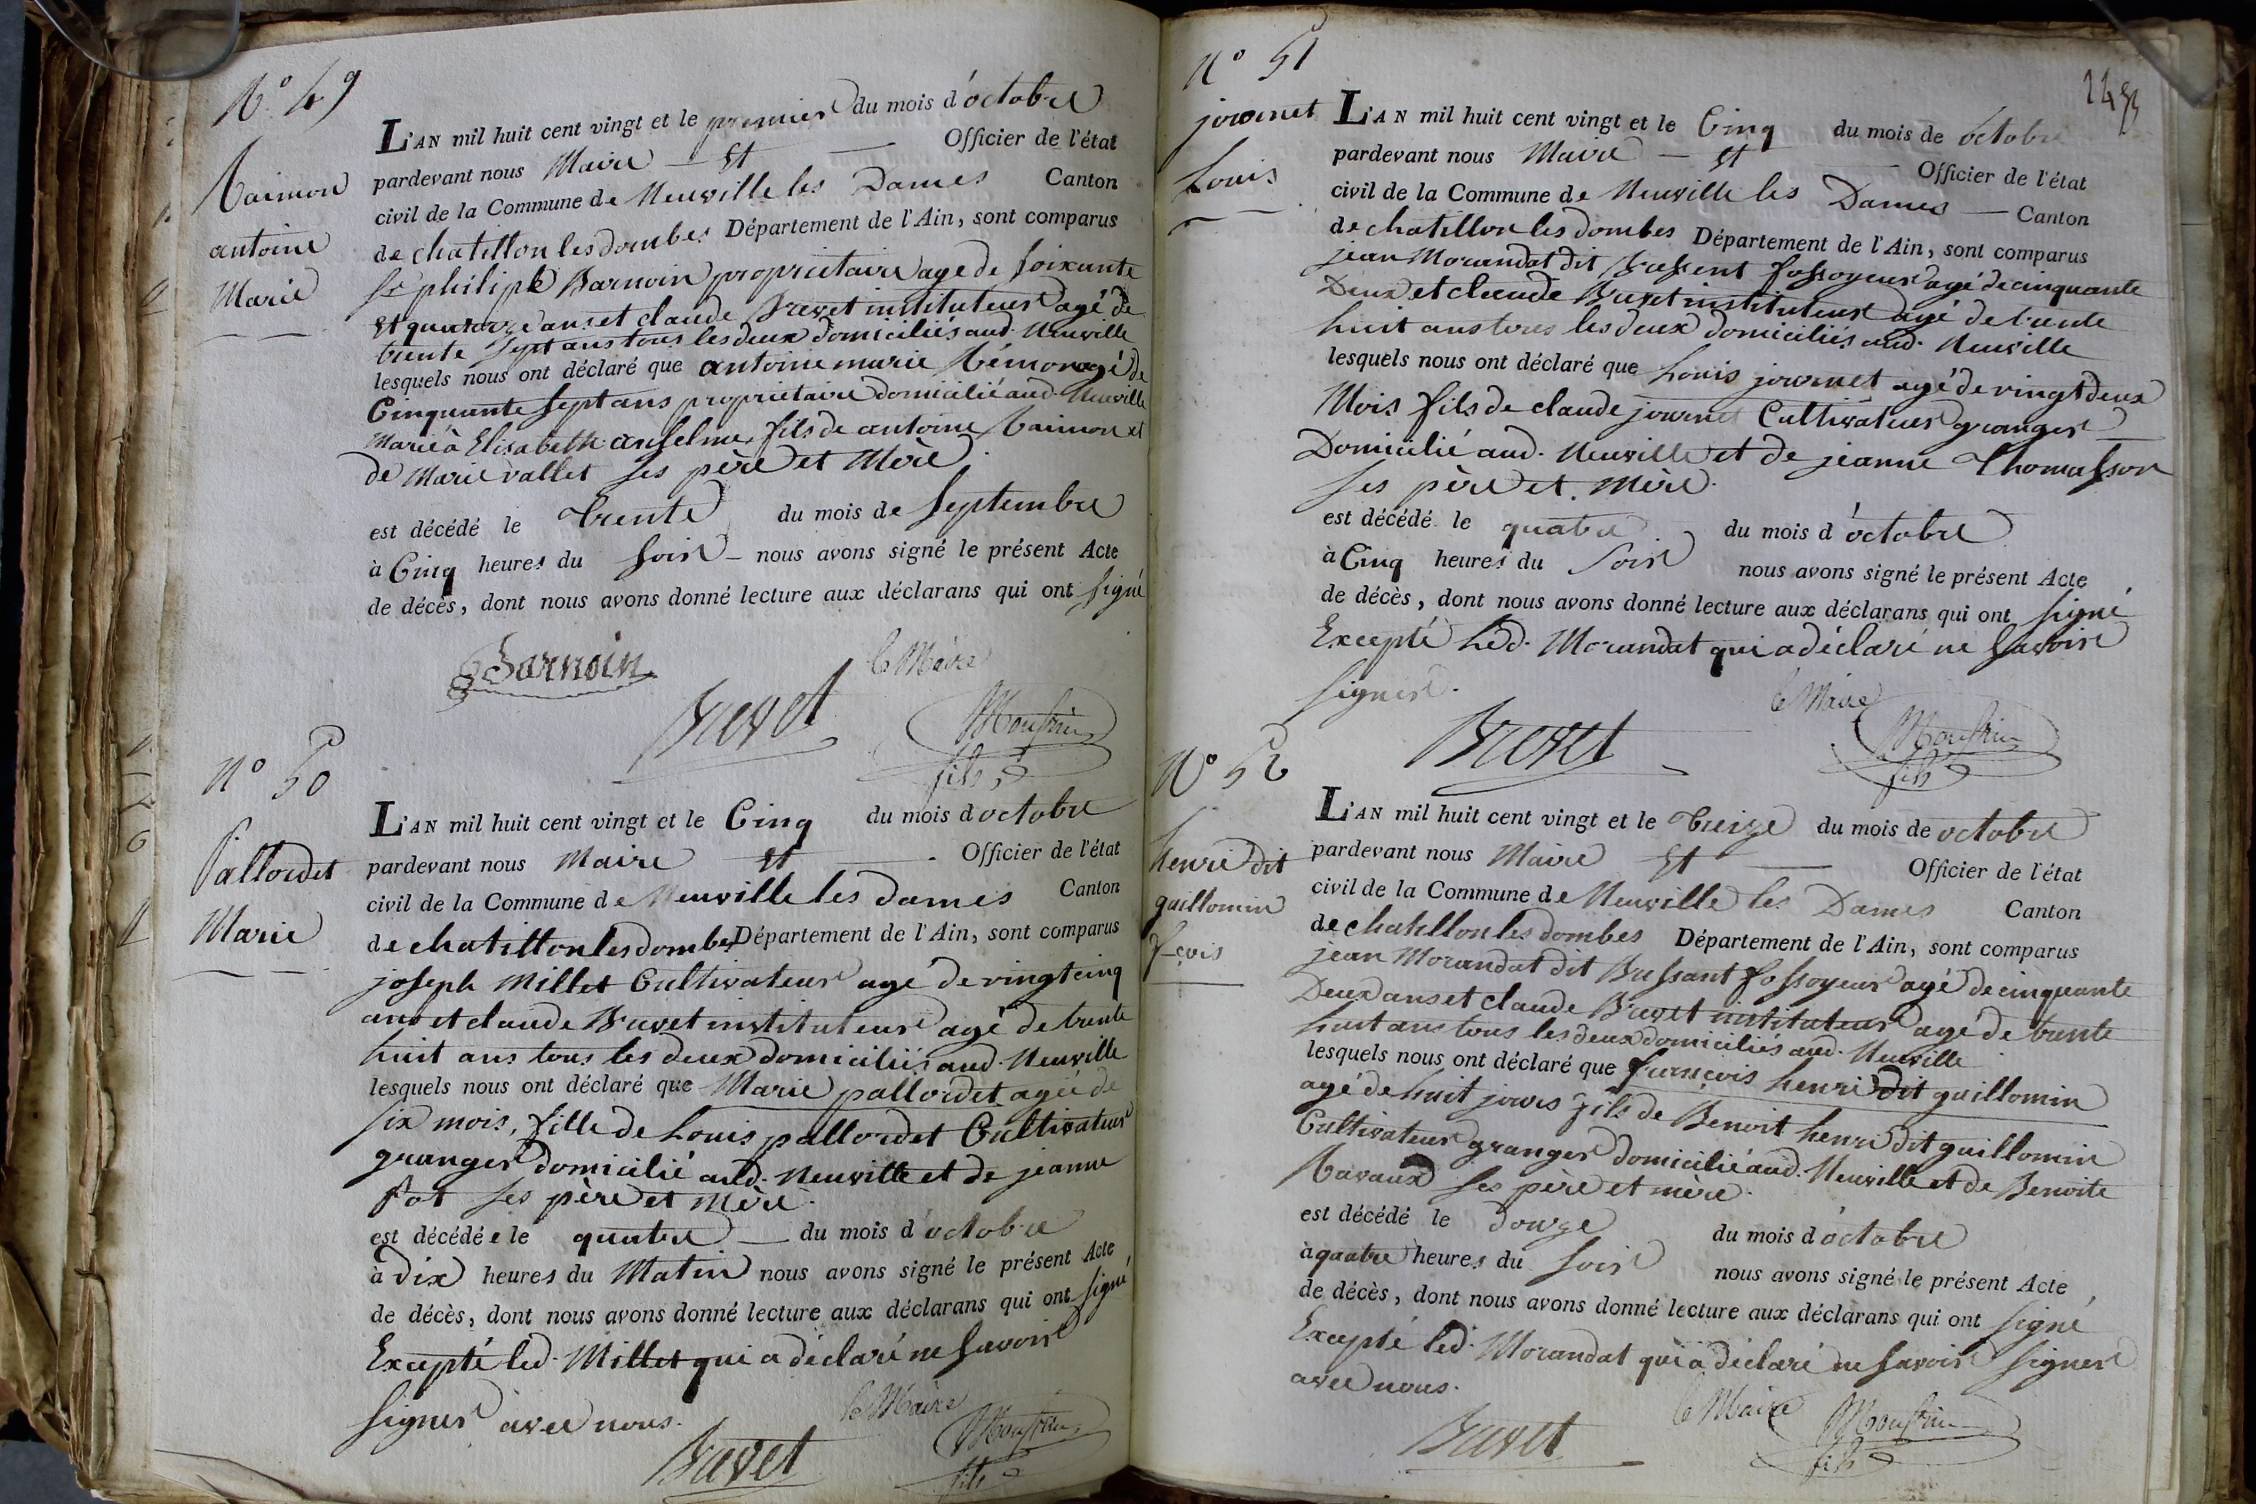 N.º 49
Raimon
antoine
Marie
L'AN mil huit cent vingt et le premier du mois d'octobre
pardevant nous Maire et Officier de l'état
civil de la Commune de Neuville les Dames Canton
de chatillon les dombes Département de l'Ain, sont comparus
Sr philipe Barnoin proprietaire agé de soixante
et quatorze ans et claude Buvet instituteur agé de
trente sept ans tous les deux domiciliés aud. Neuville
lesquels nous ont déclaré que antoine marie Rémon agé de
Cinquante sept ans proprietaire domicilié aud. Neuville
Marié à Elisabeth anselme, fils de antoine Raimon et
de Marie vallet ses père et Mère.
est décédé le trente du mois de Septembre
à Cinq heures du soir - nous avons signé le présent Acte
de décès, dont nous avons donné lecture aux déclarans qui ont signé
Barnoin
le Maire
Buvet
fils
Nº 50
pallordet
Marie
L'AN mil huit cent vingt et le Cinq du mois d octobre
pardevant nous Maire et Officier de l'état
civil de la Commune de Neuville les dames Canton
de chatillon les dombes Département de l'Ain, sont comparus
joseph Millet Cultivateur agé de vingt cinq
ans et claude Buvet instituteur agé de trente
huit ans tous les deux domiciliés aud. Neuville
lesquels nous ont déclaré que Marie pallordet agée de
six mois, fille de Louis pallordet Cultivateur
granger domicilié aud. Neuville et de jeanne
ses père et Mère.
est décédée le quatre du mois d'octobre
à dix heures du Matin nous avons signé le présent Acte
de décès, dont nous avons donné lecture aux déclarans qui ont signé,
Excepté led. Millet qui a déclaré ne savoir
signer avec nous.
le Maire
Buvet
fils
Nº 51
journet
Louis
L'AN mil huit cent vingt et le Cinq du mois de octobre
pardevant nous Maire et Officier de l'état
civil de la Commune de Neuville les Dames Canton
de chatillon les dombes Département de l'Ain, sont comparus
jean Morandat dit Bressent fossoyeur agé de cinquante
Deux et claude Buvet instituteur agé de trente
huit ans tous les deux domiciliés aud. Neuville
lesquels nous ont déclaré que Louis journet agé de vingt deux
Mois fils de claude journet Cultivateur granger
Domicilié aud. Neuville et de jeanne Thomasson
ses père et Mère.
est décédé le quatre du mois d'octobre
à Cinq heures du soir nous avons signé le présent Acte
de décès, dont nous avons donné lecture aux déclarans qui ont signé
Excepté Led. Morandat qui a déclaré ne savoir
signer.
le Maire
Buvet
fils
Nº 52
henri dit
guillomin
f-çois
L'AN mil huit cent vingt et le treize du mois de octobre
pardevant nous Maire et Officier de l'état
civil de la Commune de Neuville les Dames Canton
de chatillon les dombes Département de l'Ain, sont comparus
jean Morandat dit Bressant fossoyeur agé de cinquante
Deux ans et claude Buvet instituteur agé de trente
huit ans tous les deux domiciliés aud. Neuville
lesquels nous ont déclaré que françois henri dit guillomin
agé de huit jours fils de Benoit henri dit guillomin
Cultivateur granger domicilié aud. Neuville et de Benoite
Ravaux ses père et mère.
est décédé le douze du mois d'octobre
à quatre heures du soir nous avons signé le présent Acte,
de décès, dont nous avons donné lecture aux déclarans qui ont signé
Excepté led. Morandat qui a déclaré ne savoir signer
avec nous.
le Maire
Buvet
fils